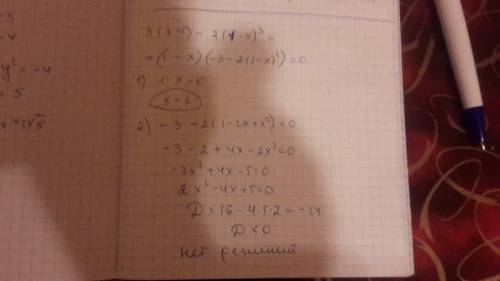 -3
-4
y² = -4
= 5
3(x-1) - 2(1-x)³ =
= (1-x)(-3-2(1-x)²) = 0
1) 1-x=0
x=1
2) -3-2(1-2x+x²)=0
-3-2+4x-2x²=0
-2x²+4x-5=0
2x²-4x+5=0
D=16-4·5·2=-24
D<0
нет решений